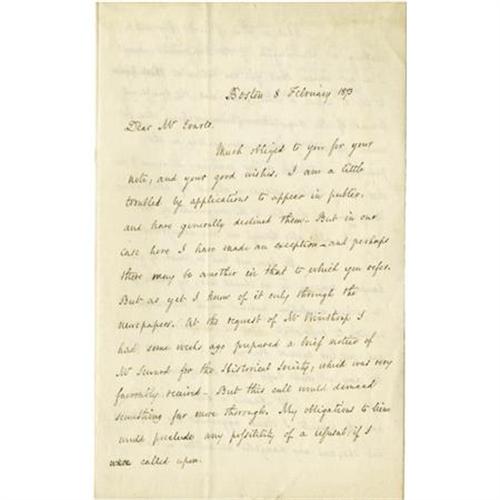 Boston 8 February 1873
Dear Mr Evarts.
Much obliged to you for your
note, and your good wishes. I am a little
troubled by applications to appear in public,
and have generally declined them – But in one
case here I have made an exception – and perhaps
there may be another in that to which you refer.
But as yet I know of it only through the
newspapers. At the request of Mr Winthrop I
had some weeks ago prepared a brief notice of
Mr Seward for the Historical Society, which was very
favorably received – But this call would demand
something far more thorough. My obligations to him
would preclude any possibility of a refusal, if I
were called upon.